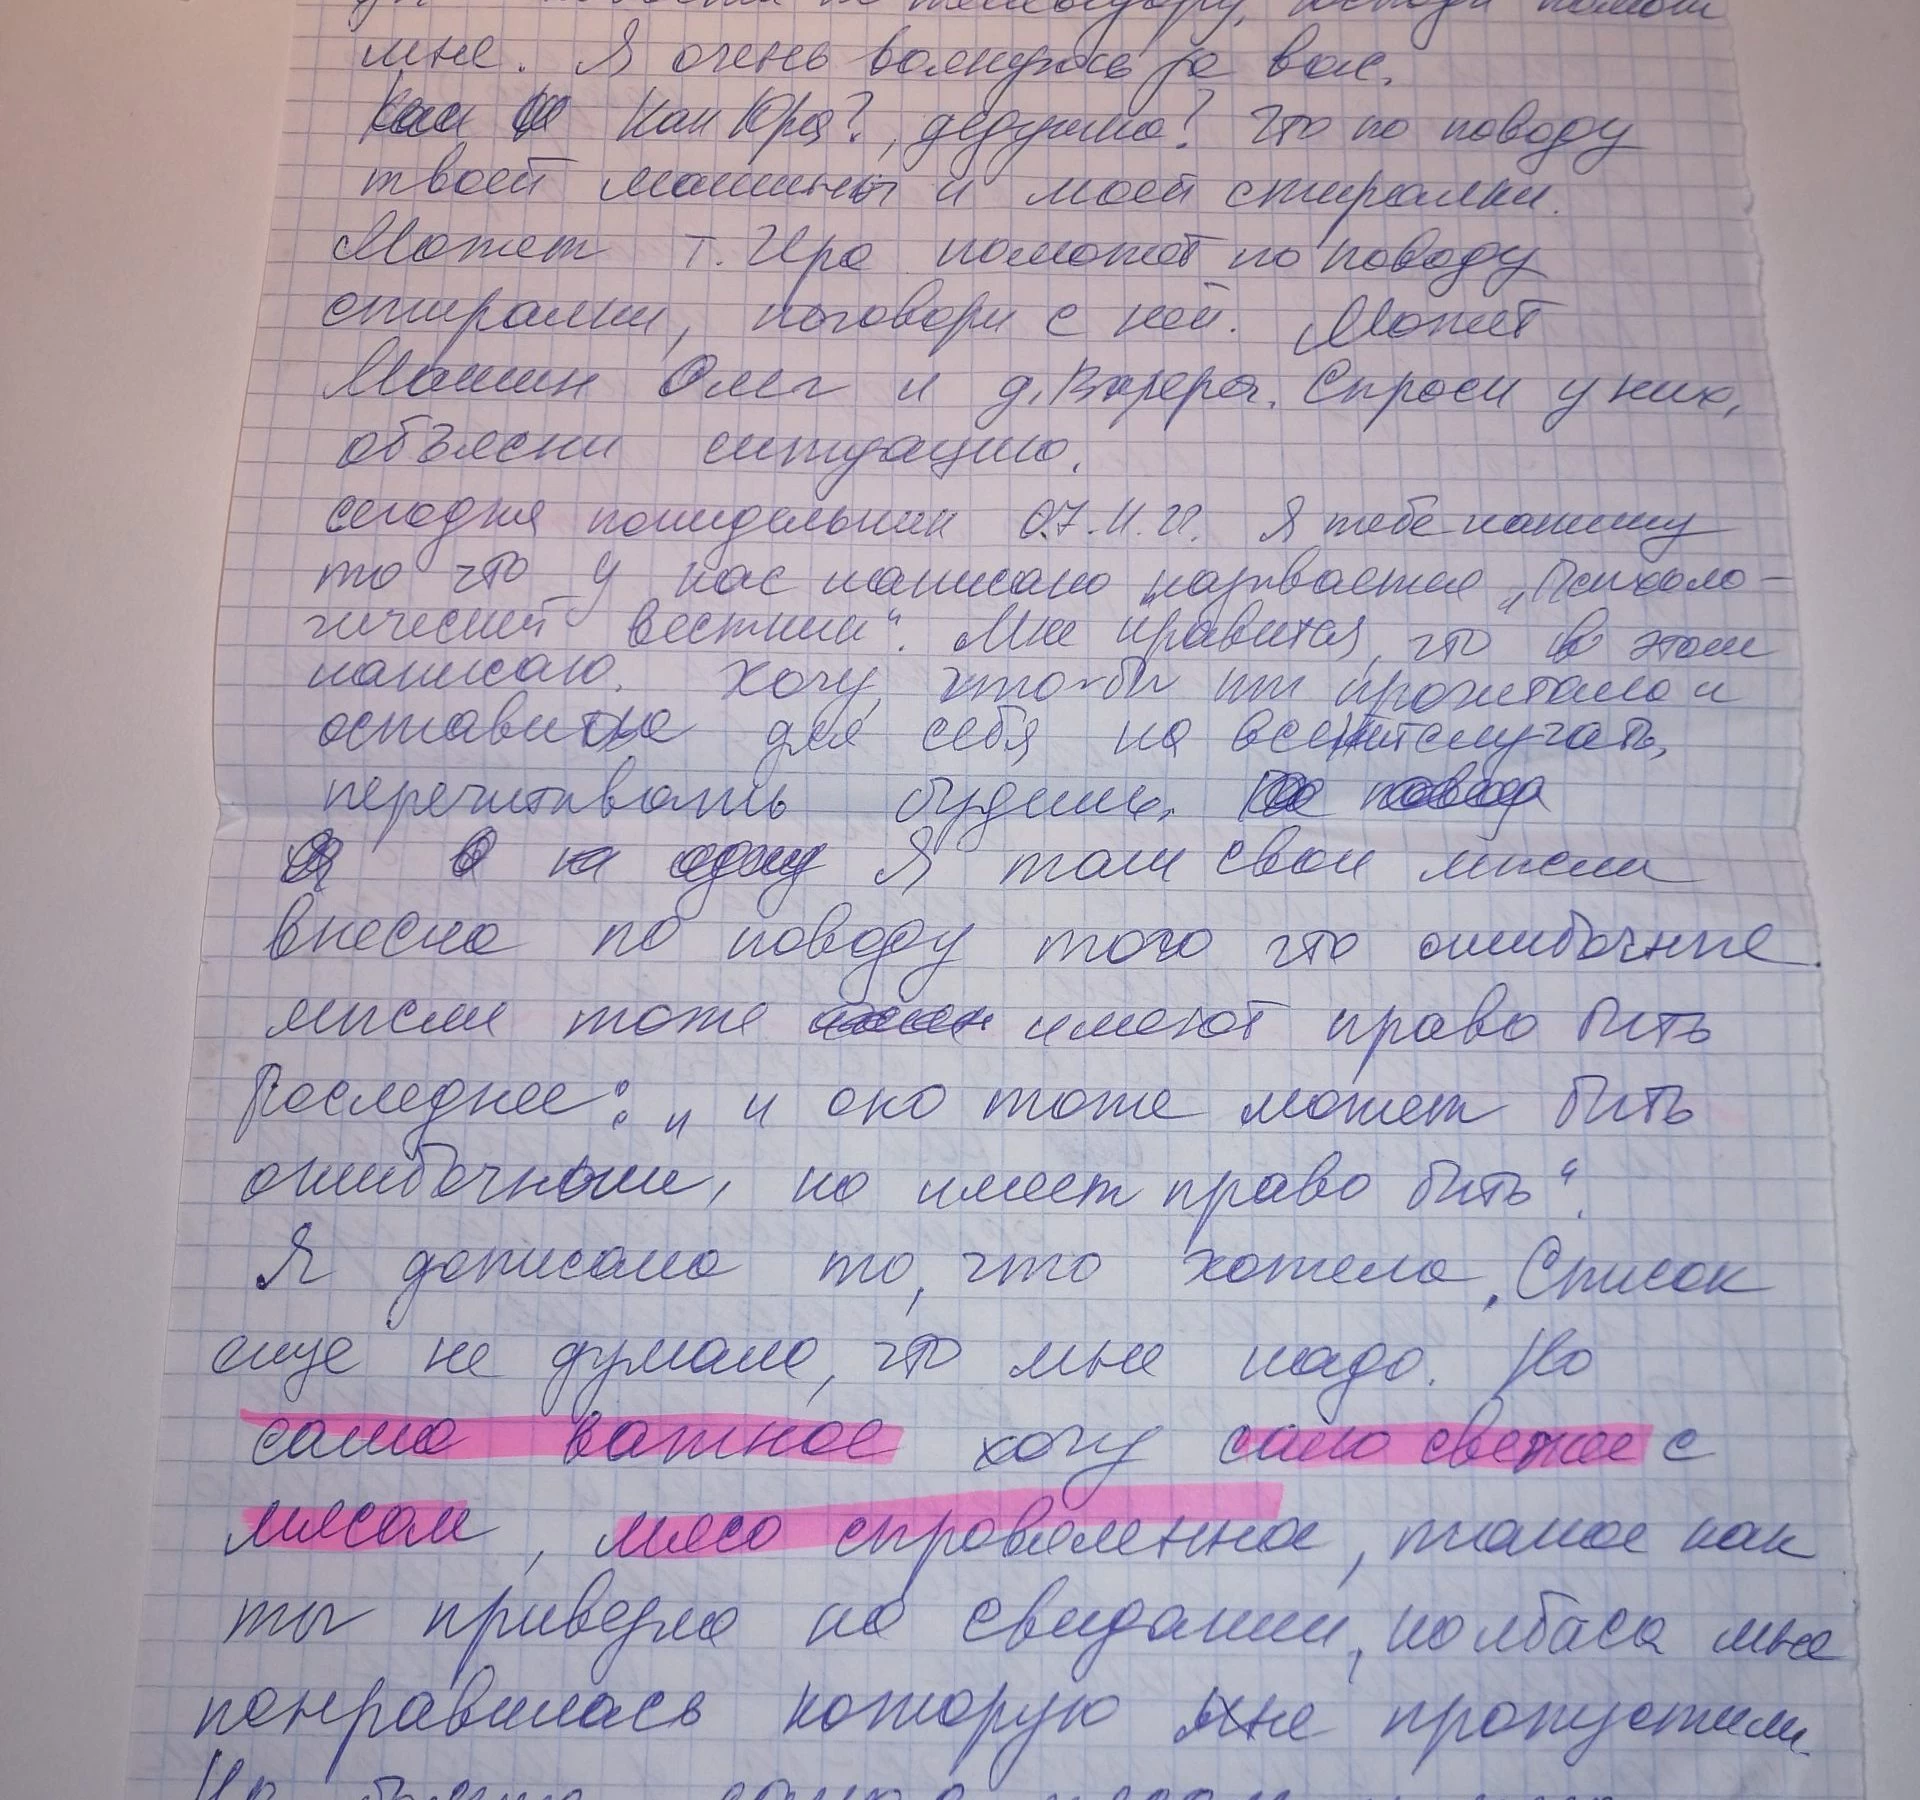 мне. Я очень волнуюсь за вас.
Как Юра?, дедушка? Что по поводу
твоей машины и моей стиралки.
Может т. Ира поможет по поводу
стиралки, поговори с ней. Может
Машин Олег и д. Валера. Спроси у них,
объясни ситуацию.
сегодня понидельник 07.11.22. Я тебе напишу
то что у нас написано называется „Психоло-
гический вестник“. Мне нравится, что в этом
написано. Хочу, что-бы ты прочитала и
оставила для себя на всей случать,
перечитывать будешь.
Я там свои мысли
внесла по поводу того что ошибочные
мысли тоже имеют право быть
Последнее: „и оно тоже может быть
ошибочным, но имеет право быть“.
Я дописала то, что хотела. Список
еще не думала, что мне надо. Но
само важное хочу сало свежее с
мясом, мясо справленное, такое как
ты привезла на свидании, колбаса мне
понравилась которую мне пропустили.